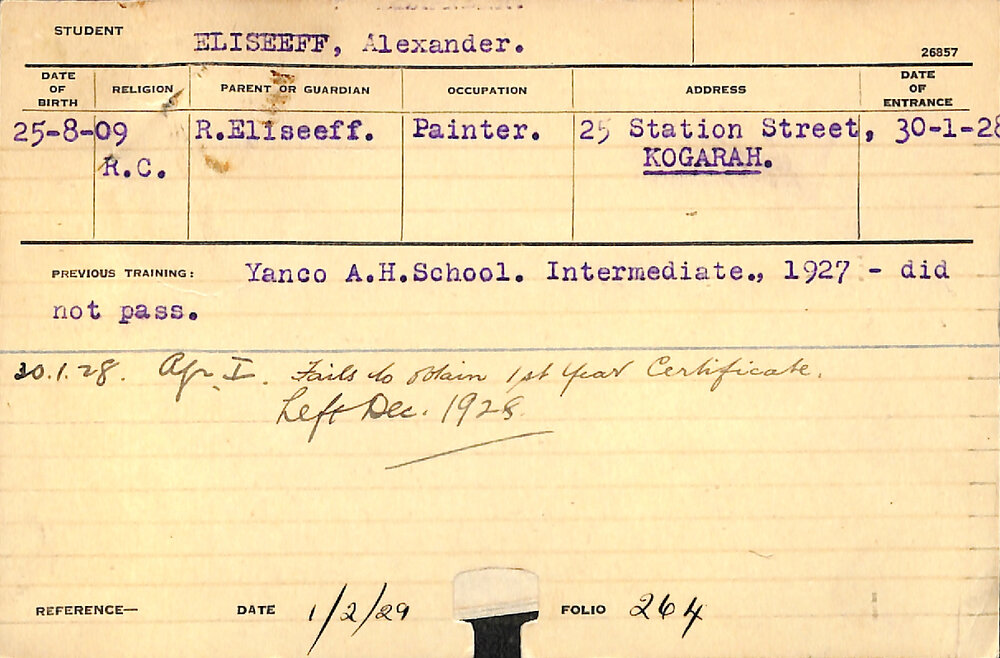 STUDENT ELISEEFF, Alexander.
26857
DATE OF BIRTH RELIGION PARENT OR GUARDIAN OCCUPATION ADDRESS DATE OF ENTRANCE
25-8-09 R.Eliseeff. Painter. 25 Station Street, 30-1-28
R.C. KOGARAH.
PREVIOUS TRAINING: Yanco A.H.School. Intermediate., 1927 - did
not pass.
30.1.28. Agr I. Fails to obtain 1st Year Certificate.
Left Dec. 1928.
REFERENCE— DATE 1/2/29 FOLIO 264